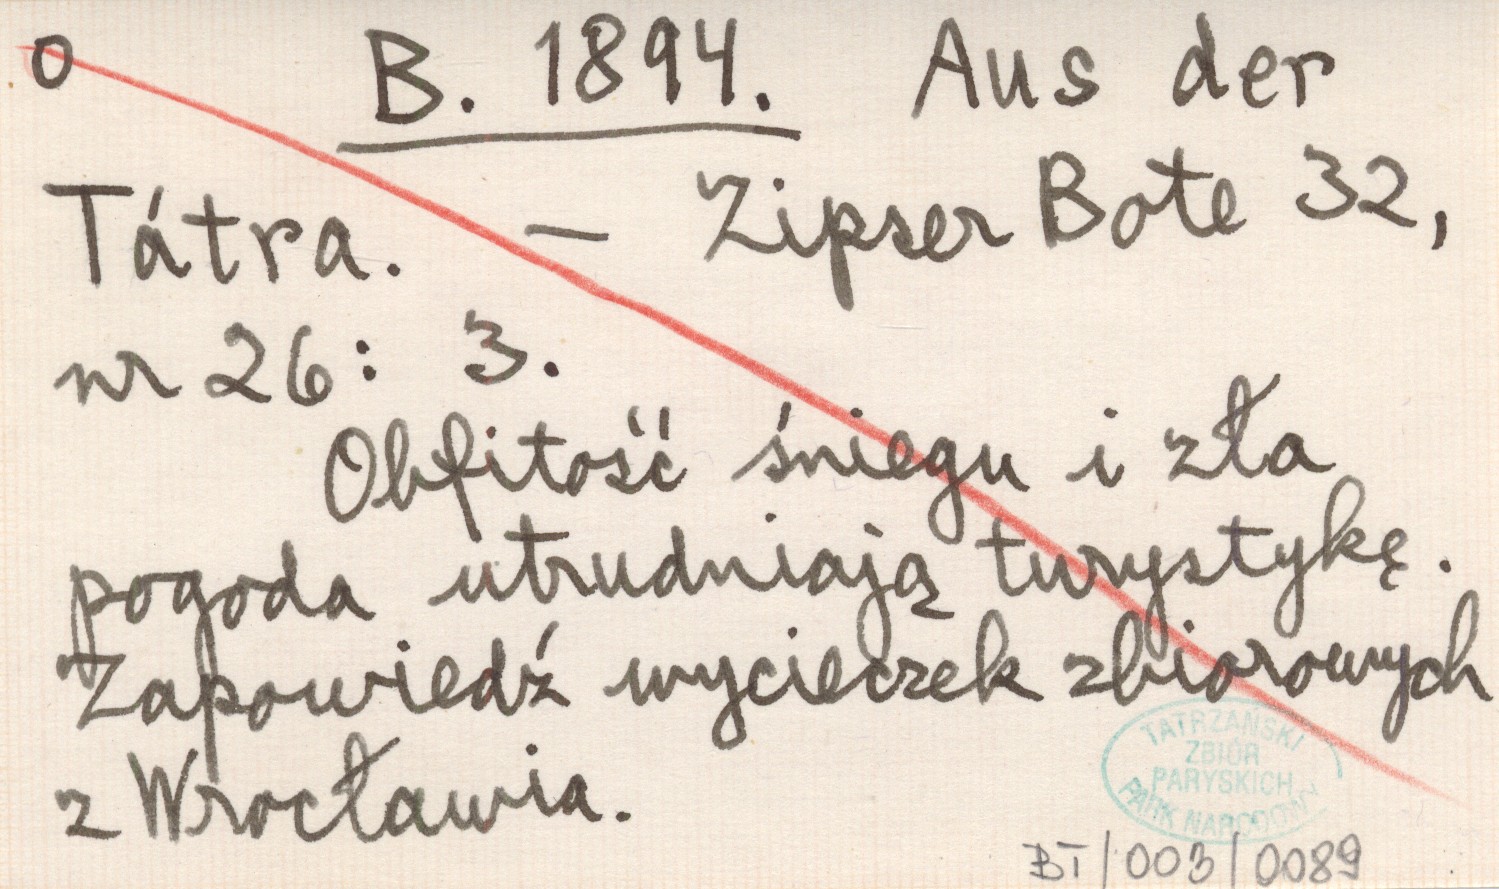 o B. 1894. Aus der
Tátra. — Zipser Bote 32,
nr 26: 3.
Obfitość śniegu i zła
pogoda utrudniają turystykę.
Zapowiedź wycieczek zbiorowych
z Wrocławia.
TATRZAŃSKI
ZBIÓR
PARYSKICH
PARK NARODOWY
BT/003/0089